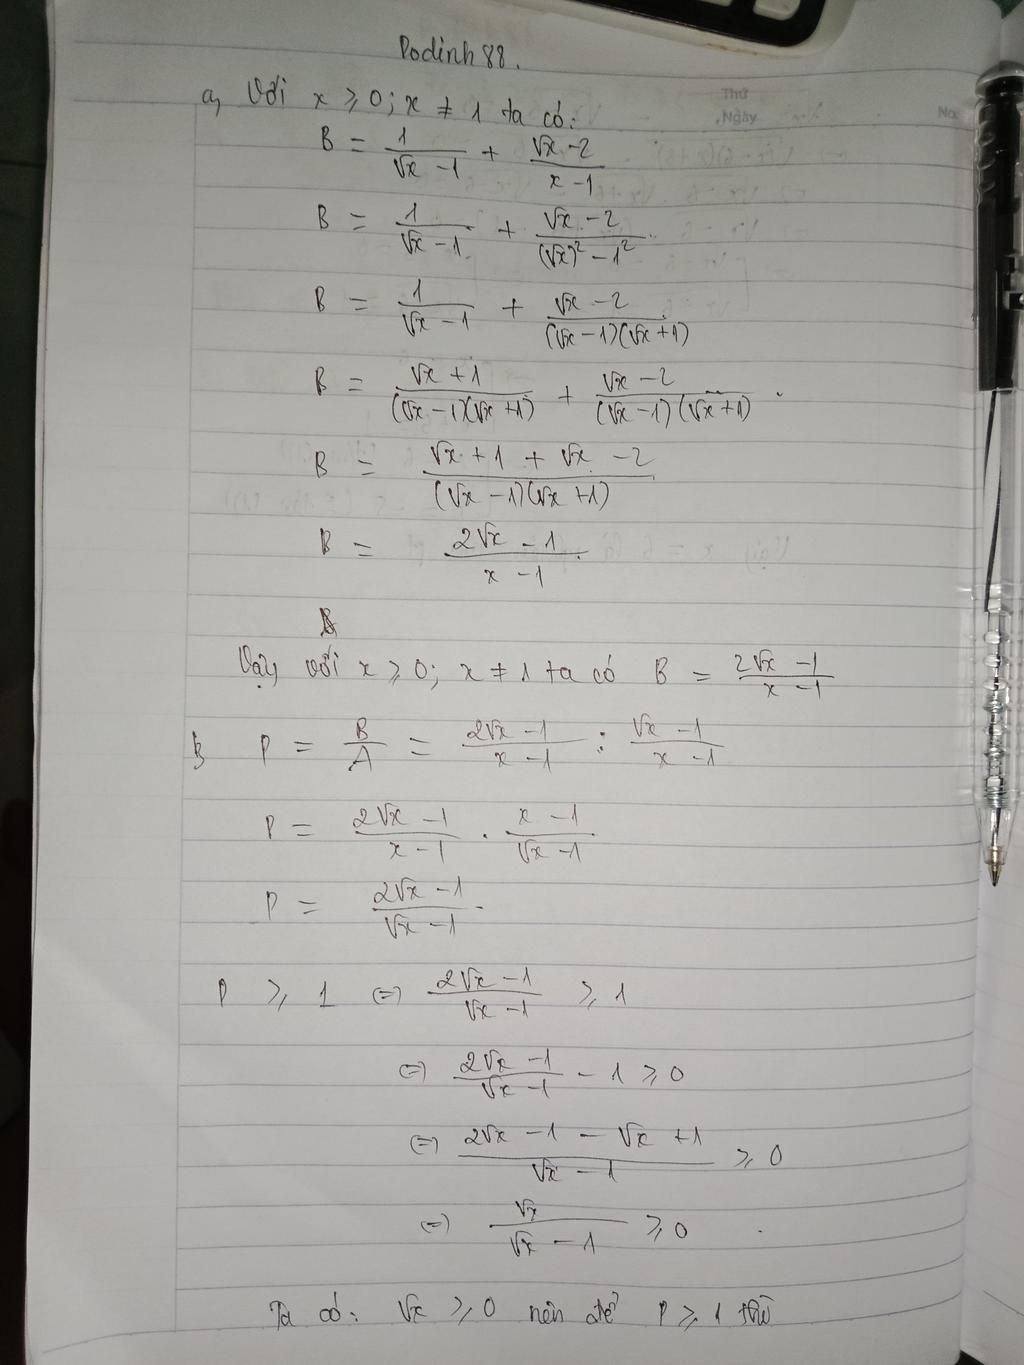 Podinh 88.
Thứ
Ngày
No.
a, Với x ⩾ 0; x ≠ 1 ta có:
B = 1/(√x - 1) + (√x - 2)/(x - 1)
B = 1/(√x - 1) + (√x - 2)/((√x)² - 1²)
B = 1/(√x - 1) + (√x - 2)/((√x - 1)(√x + 1))
B = (√x + 1)/((√x - 1)(√x + 1)) + (√x - 2)/((√x - 1)(√x + 1)) .
B = (√x + 1 + √x - 2)/((√x - 1)(√x + 1))
B = (2√x - 1)/(x - 1).
Vậy với x ⩾ 0; x ≠ 1 ta có B = (2√x - 1)/(x - 1)
b, P = B/A = (2√x - 1)/(x - 1) : (√x - 1)/(x - 1)
P = (2√x - 1)/(x - 1) . (x - 1)/(√x - 1)
P = (2√x - 1)/(√x - 1).
P ⩾ 1 (=) (2√x - 1)/(√x - 1) ⩾ 1
(=) (2√x - 1)/(√x - 1) - 1 ⩾ 0
(=) (2√x - 1 - √x + 1)/(√x - 1) ⩾ 0
(=) √x/(√x - 1) ⩾ 0 .
Ta có: √x ⩾ 0 nên để P ⩾ 1 thì